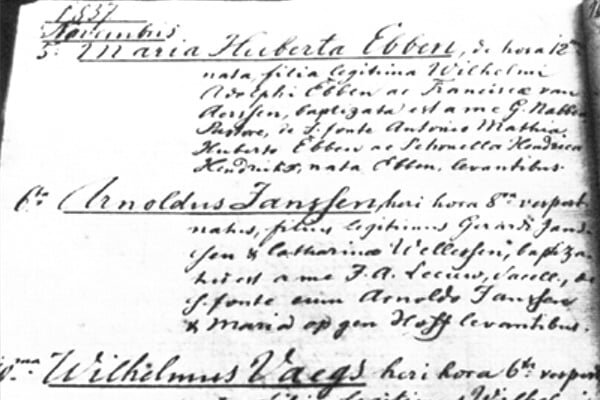 1837
Novembris
5. Maria Huberta Ebben, de hora 12ma
nata, filia legitima Wilhelmi
Adolphi Ebben ac Franciscæ van
Aerssen, baptizata est a me G. Nabben
Pastore, de S. fonte Antonio Mathia
Huberto Ebben ac Petronella Hendrica
Hendrikx, nata Ebben, levantibus.
6ta Arnoldus Janssen, heri hora 8va vespert.
natus, filius legitimus Gerardi Jans-
sen & Catharinæ Wellessen, baptiza-
tus est a me F. A. Leeuws, Sacell., de
S. fonte eum Arnoldo Janssen
& Maria op gen Hoff levantibus.
Wilhelmus Vaegs heri hora 6ta vespert